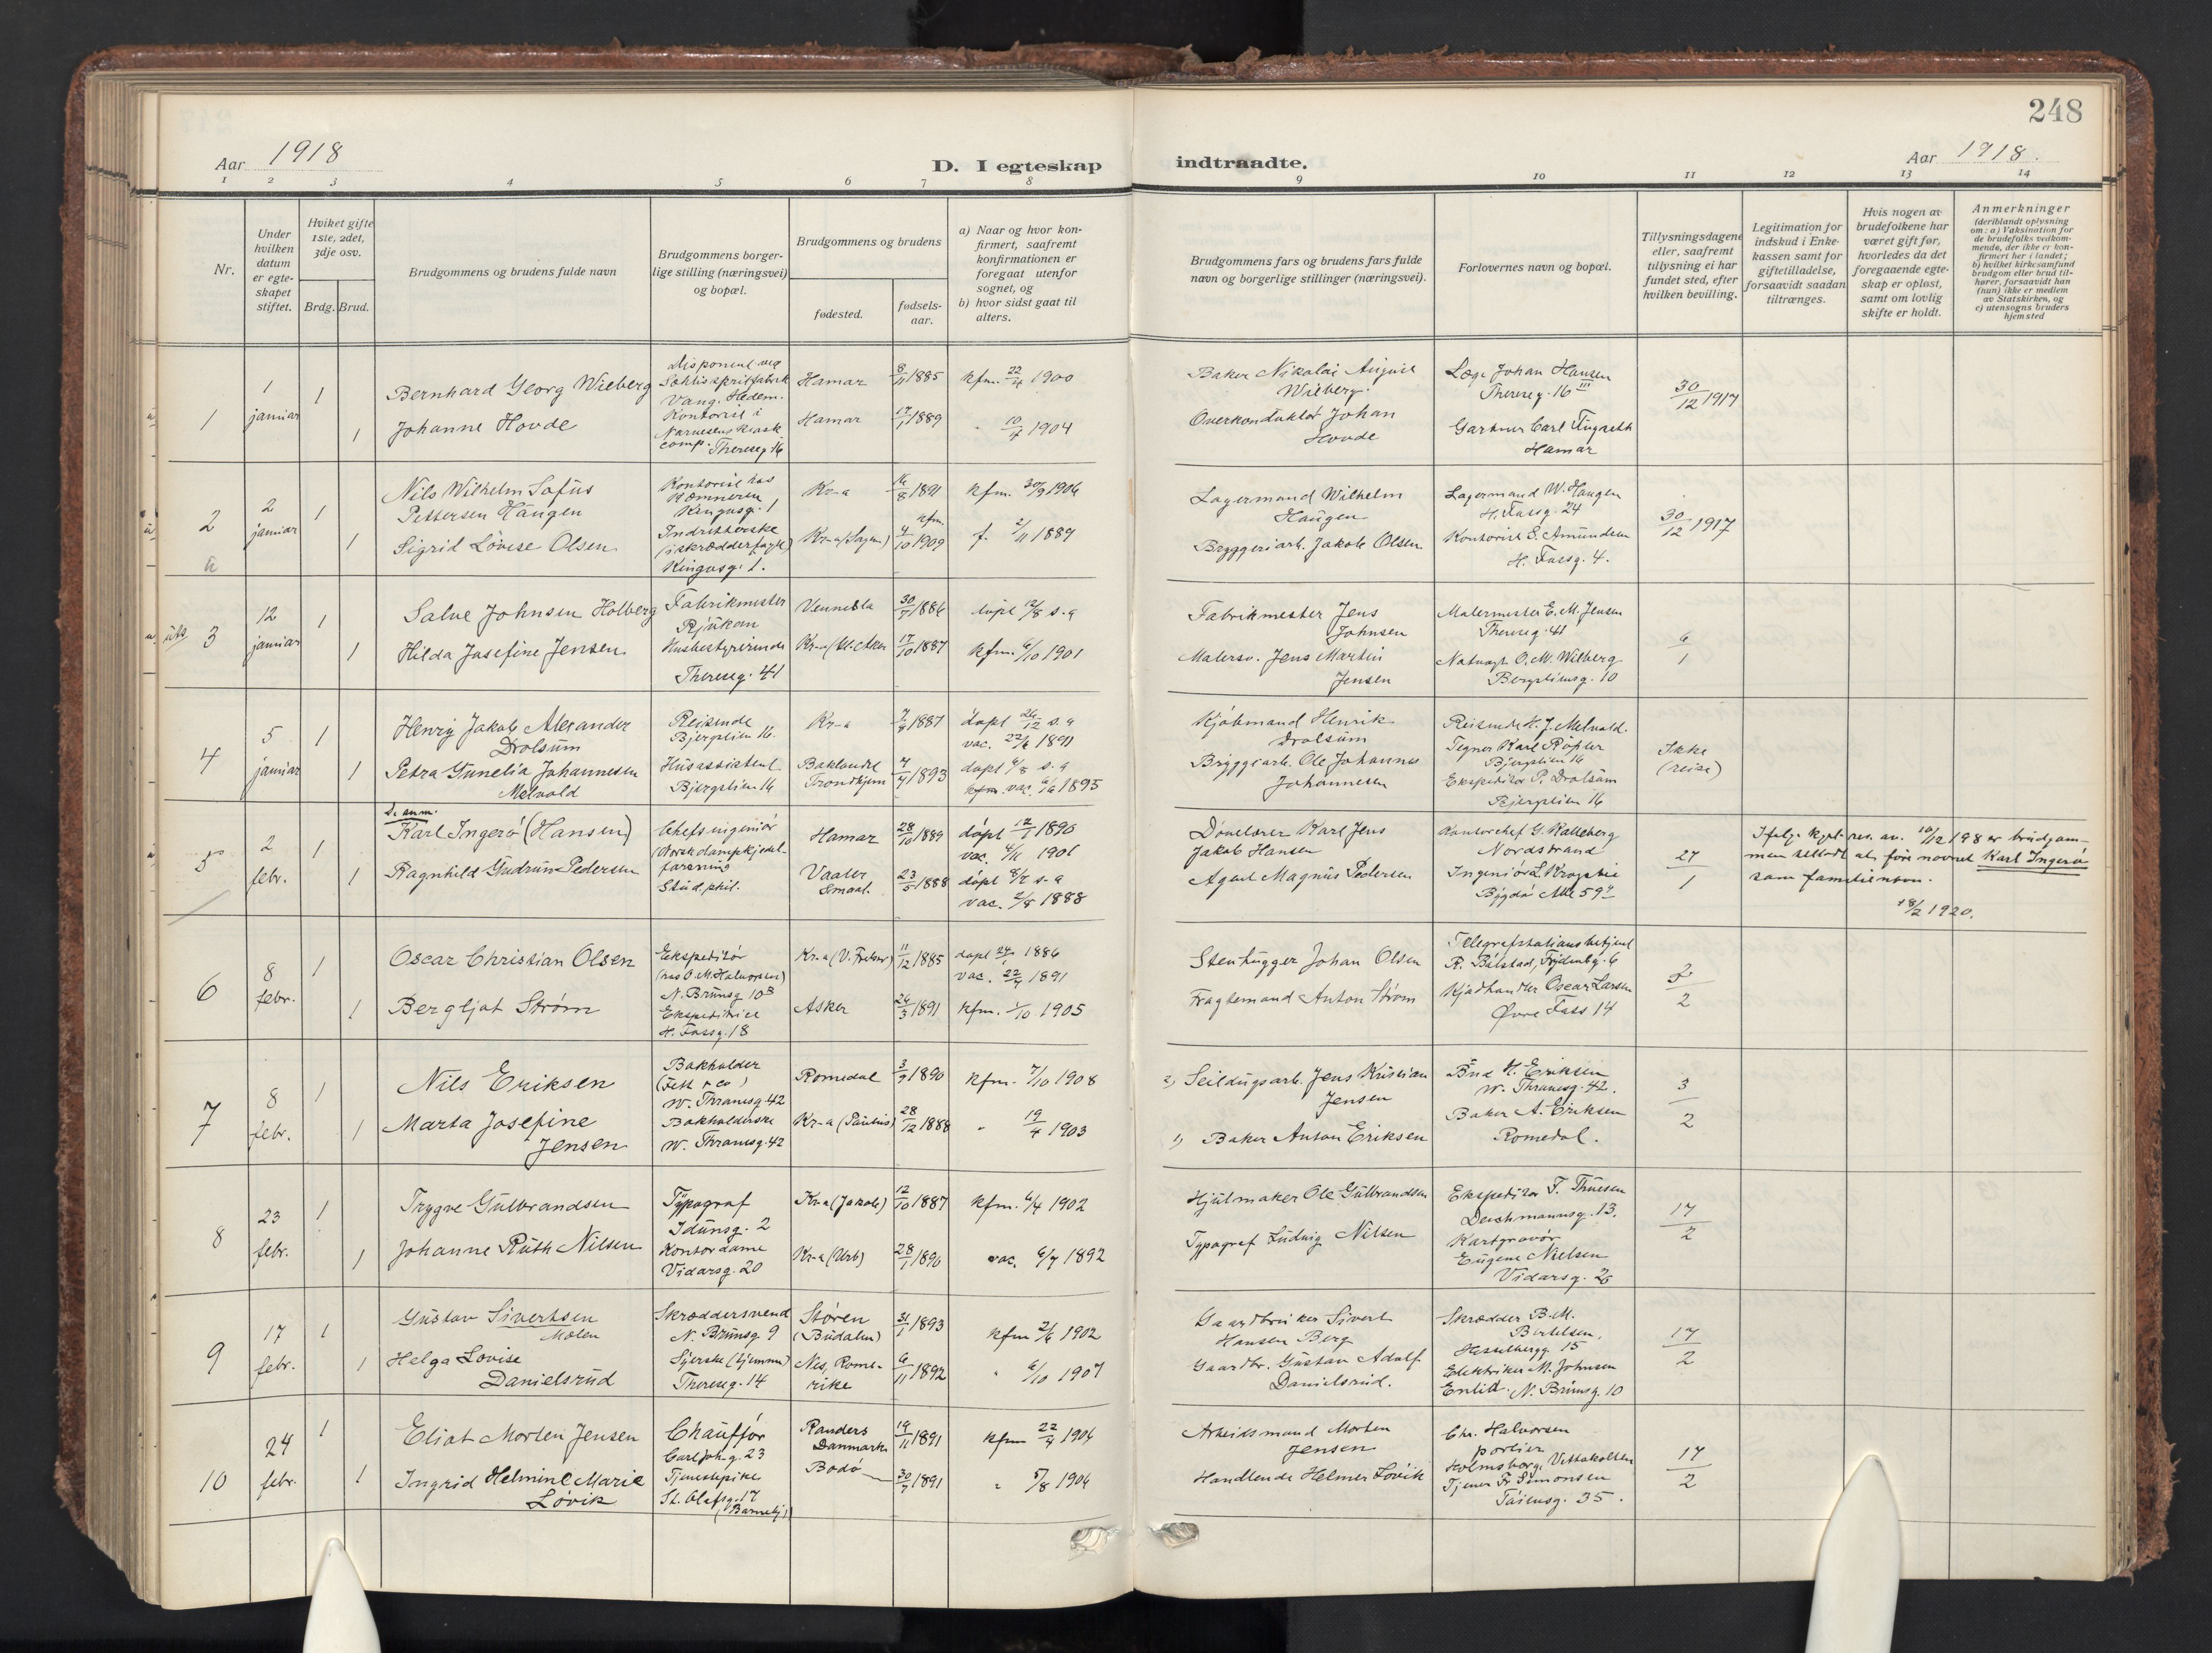 248
Aar 1918
D. I egteskap
indtraadte.
Aar 1918.
1 2 3 4 5 6 7 8
9 10 11 12 13 14
Nr.
Under hvilken datum er egteskapet stiftet.
Hvilket gifte 1ste, 2det, 3dje osv.
Brdg. Brud.
Brudgommens og brudens fulde navn
Brudgommens borgerlige stilling (næringsvei) og bopæl.
Brudgommens og brudens
fødested.
fødselsaar.
a) Naar og hvor konfirmert, saafremt konfirmationen er foregaat utenfor sognet, og
b) hvor sidst gaat til alters.
Brudgommens fars og brudens fars fulde navn og borgerlige stillinger (næringsvei).
Forlovernes navn og bopæl.
Tillysningsdagene eller, saafremt tillysning ei har fundet sted, efter hvilken bevilling.
Legitimation for indskud i Enkekassen samt for giftetilladelse, forsaavidt saadan tiltrænges.
Hvis nogen av brudefolkene har været gift før, hvorledes da det foregaaende egteskap er opløst, samt om lovlig skifte er holdt.
Anmerkninger
(deriblandt oplysning om: a) Vaksination for de brudefolks vedkommende, der ikke er konfirmert her i landet; b) hvilket kirkesamfund brudgom eller brud tilhører, forsaavidt han (hun) ikke er medlem av Statskirken, og c) utensogns bruders hjemsted
1
1 januar
1
Bernhard Georg Wieberg
Disponent ved
Vang. Hedem.
Hamar
8/11 1885
kfm. 22/4 1900
Baker Nikolai August
Wieberg.
Læge Johan Hansen
Thereseg. 16 III
30/12 1917
1
Johanne Hovde
Kontorist i
Narvesens kiosk
comp. Thereseg 16
Hamar
17/1 1889
" 10/7 1904
Overkonduktør Johan
Hovde
Gartner Carl
Hamar
2
2 januar
1
Nils Wilhelm Sofus
Pettersen Haugen
Kontorist hos
Kæmneren
Kingosg. 1
Kr-a
16/8 1891
kfm. 30/9 1906
Lagermand Wilhelm
Haugen
Lagermand W. Haugen
H. Fassg. 24
30/12 1917
1
Sigrid Lovise Olsen
(i skrædderfaget)
Kingosg. 1.
Kr-a (Sagene)
kfm.
4/10 1909
f. 2/11 1889
Bryggeriarb. Jakob Olsen
Kontorist S. Amundsen
H. Fassg. 4.
3
12 januar
1
Salve Johnsen Holberg
Fabrikmester
Rjukan
Vennesla
30/7 1886
døpt 12/8 s. a
Fabrikmester Jens
Johnsen
Malermester E. M. Jensen
Thereseg. 41
6/1
1
Hilda Josefine Jensen
Husbestyrerinde
Thereseg. 41
Kr-a (V. Aker
17/10 1887
kfm. 6/10 1901
Malersv. Jens Martin
Jensen
Natvagt O. M. Wilberg
Bergsliensg. 10
4
5 januar
1
Henry Jakob Alexander
Drolsum
Reisende
Bjergslien 16.
Kr-a
7/9 1887
døpt 26/12 s. a
vac. 22/6 1891
Kjøbmand Henrik
Drolsum
Reisende H. J. Melvold.
Tegner Karl Röpler
Bjergslien 16
Ikke
(reise)
1
Petra Gunelia Johannesen
Melvold
Husassistent
Bjergslien 16
Baklandet
Trondhjem
7/7 1893
døpt 6/8 s. a
kfm. vac. 6/6 1895
Bryggearb. Ole Johannes
Johannesen
Ekspeditør P. Drolsum
Bjergslien 16
5
2 febr.
1
Se anm.
Karl Ingerø (Hansen)
Chefsingeniør
(Norsk dampkjedelforening
Hamar
28/10 1889
døpt 12/1 1890
vac. 4/11 1901
Jakob Hansen
Kontorchef G. Kalleberg
Nordstrand
27/1
Ifølge kgl. res. av 10/12 198 er brudgommen tilladt at føre navnet Karl Ingerø
som familienavn.
18/2 1920.
1
Ragnhild Gudrun Pedersen
Stud. phil.
Vaaler
Smaal.
23/5 1888
døpt 8/7 s. a
vac. 2/8 1888
Agent Magnus Pedersen
Bygdø Alle 59
6
8 febr.
1
Oscar Christian Olsen
Ekspeditør
(hos O. M. Halvorsen)
N. Brunsg 10 B
11/12 1885
døpt 24/1 1886
vac. 22/4 1891
Stenhugger Johan Olsen
Telegrafstationsbetjent
2/2
1
Bergljot Strøm
Ekspeditrice
H. Fassg. 18
Asker
26/3 1891
kfm. 1/10 1905
Fragtemand Anton Strøm
Kjødhandler Oscar Larsen
Øvre Foss 14
7
8 febr.
1
Nils Eriksen
Bokholder
W. Thranesg 42
Romedal
3/9 1890
kfm. 7/10 1908
2) Seildugsarb. Jens Kristian
Jensen
Bud H. Eriksen
W. Thranesg. 42.
3/2
1
Marta Josefine
Jensen
Bokholderske
W. Thranesg. 42
Kr-a (Paulus)
28/12 1888
" 19/4 1903
1) Baker Anton Eriksen
Baker A. Eriksen
Romedal.
8
23 febr.
1
Trygve Gulbrandsen
Typograf
Idunsg. 2
Kr-a (Jakob)
12/10 1887
kfm. 6/4 1902
Hjulmaker Ole Gulbrandsen
Ekspeditør T. Thuesen
Deichmannsg. 13.
17/2
1
Johanne Ruth Nilsen
Kontordame
Vidarsg. 20
Kr-a (Urb)
28/1 1890
vac. 6/7 1892
Typograf Ludvig Nilsen
Kartgravør
Eugene Nielsen
Vidarsg. 20
9
17 febr.
1
Gustav Sivertsen
Molen
Skræddersvend
N. Brunsg 9
Støren
(Budalen)
31/1 1893
kfm 2/6 1902
Gaardbruker Sivert
Hansen Berg
Skrædder B. M.
Bertelsen,
Hesselbergg. 15
17/2
1
Helga Lovise
Danielsrud
Syerske (hjemme)
Thereseg. 14
Nes, Romerike
6/11 1892
" 6/10 1907
Gaardbr. Gustav Adolf
Danielsrud.
Elektriker M. Johnsen
Enlid. N. Brunsg. 10
10
24 febr.
1
Eliot Morten Jensen
Chauffør
Carl Joh. g. 23
Randers
Danmark
19/11 1891
kfm 22/4 1906
Arbeidsmand Morten
Jensen
Chr. Halvorsen
portier
17/2
1
Ingrid Helmine Marie
Løvik
Tjenestepike
St. Olafsg. 17
Bodø
30/7 1891
" 5/8 1906
Handlende Helmer Løvik
Tjener Fr Simonsen
Tøiensg. 35.